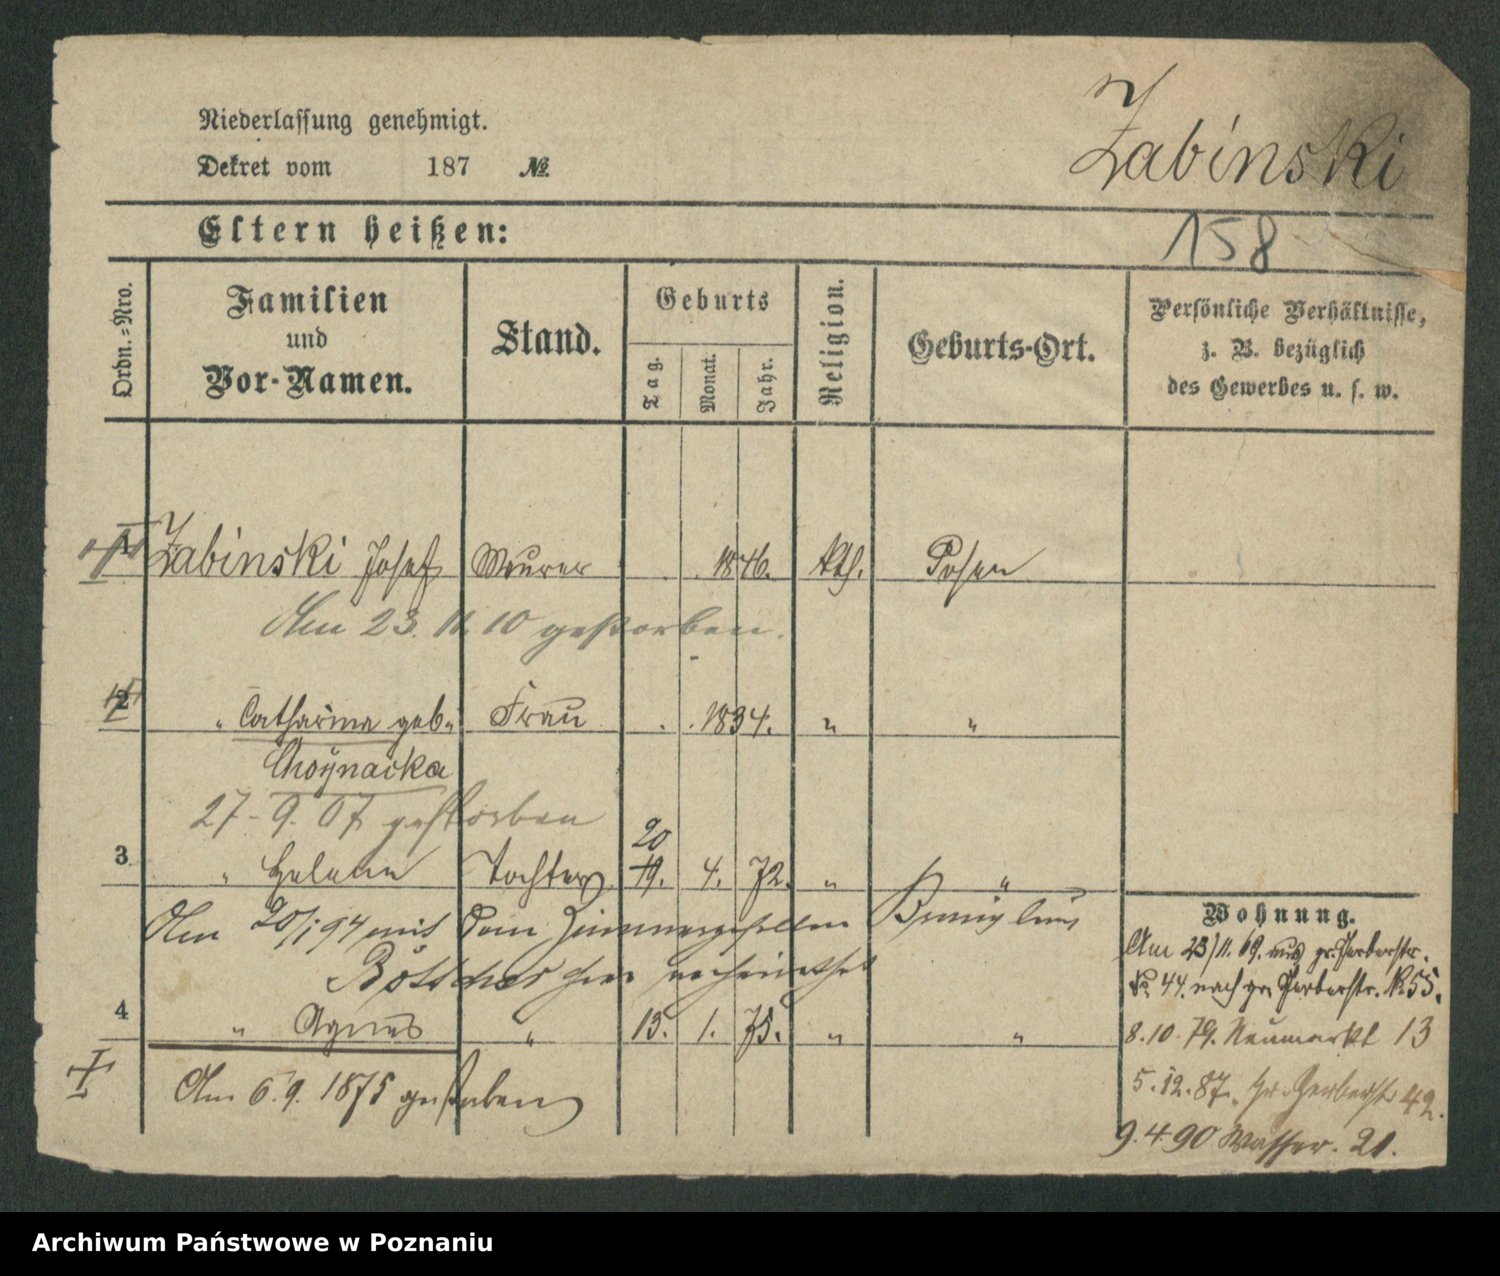 Niederlassung genehmigt.
Dekret vom 187 №
Żabinski
158
Eltern heißen:
Ordn.-Nro.
Familien
und
Vor-Namen.
Stand.
Geburts
Tag.
Monat.
Jahr.
Religion.
Geburts-Ort.
Persönliche Verhältnisse,
z. B. bezüglich
des Gewerbes u. s. w.
1 Żabinski Josef Maurer 1846. kth. Posen
Am 23. 11. 10 gestorben.
2 " Catharina geb. Frau 1834. " "
Choynacka
27-9.07 gestorben
20
3 " Helene Tochter 19. 4. 72. " "
Am 20/1 94 mit dem Zimmergesellen
Böttcher hier verheirathet
4 " Agnes " 15. 1. 75. " "
Am 6.9. 1875 gestorben
Wohnung.
Am 23/11. 69. aus gr. Gerberstr.
No 44. nach gr. Gerberstr. No 55.
8.10.79. Neumarkt 13
5.12.87. Gr. Gerberstr 42.
9.4.90 Wasser. 21.
Archiwum Państwowe w Poznaniu